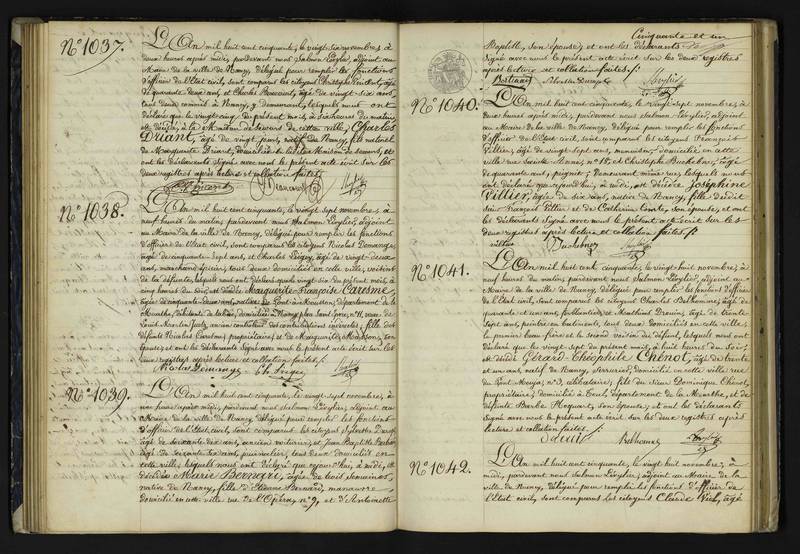 No 1037.
L'An mil huit cent cinquante, le vingt six novembre à
deux heures après midi, pardevant nous Salmon Lévylier, adjoint au
Maire de la ville de Nancy, délégué pour remplir les fonctions
d'officier de l'Etat civil, sont comparus les citoyens Christophe
de quarante deux ans, et Charles âgé de vingt six ans,
tous deux commis à Nancy, y demeurant, lesquels nous ont
déclaré que le vingt cinq du présent mois, à six heures du matin,
est décédé, à la Maison de Secours de cette ville, Charles
Driant, âgé de vingt jours, natif de Nancy, fils naturel
de Marguerite Driant, domiciliée à la dite Maison de secours, et
ont les déclarants signé avec nous le présent acte écrit sur les
deux registres après lecture et collation faites.
No 1038.
L'An mil huit cent cinquante, le vingt sept novembre à
neuf heures du matin, pardevant nous Salmon Lévylier, adjoint
au Maire de la ville de Nancy, délégué pour remplir les fonctions
d'officier de l'Etat civil, sont comparus les citoyens Nicolas Demange,
âgé de cinquante sept ans, et Charles Liégey, âgé de vingt deux
ans, marchand épicier, tous deux domiciliés en cette ville, voisins
de la défunte, lesquels nous ont déclaré que le vingt six du présent mois, à
cinq heures du soir, est décédée Marguerite Françoise Carisme,
âgée de cinquante deux ans, native de Pont à Mousson, département de
la Meurthe, domiciliée à Nancy, place Saint Jean, no 11, veuve de
contributions indirectes, fille des
défunts Nicolas Carisme, propriétaire, et de Marguerite Masson, son
épouse; et ont les déclarants signé avec nous le présent acte écrit sur les
deux registres après lecture et collation faites.
Nicolas Demange Ch. Liégey
No 1039.
L'An mil huit cent cinquante, le vingt sept novembre, à
une heure après midi, pardevant nous Salmon Lévylier, adjoint au
Maire de la ville de Nancy, délégué pour remplir les fonctions
d'officier de l'Etat civil, sont comparus les citoyens Sylvestre
âgé de soixante dix ans, ancien voiturier, et Jean Baptiste
âgé de soixante six ans, tous deux domiciliés en
cette ville, lesquels nous ont déclaré que ce jour d'hui, à midi, est
décédée Marie Bernard, âgée de trois semaines,
native de Nancy, fille d'Etienne Bernard, manœuvre,
domicilié en cette ville rue de l'Opéra, no 9, et d'Antoinette
Cinquante et un
Baptette, son épouse; et ont les déclarants
signé avec nous le présent acte écrit sur les deux registres
après lecture et collation faites.
No 1040.
L'An mil huit cent cinquante, le vingt sept novembre, à
deux heures après midi, pardevant nous Salmon Lévylier, adjoint
au Maire de la ville de Nancy, délégué pour remplir les fonctions
d'officier de l'Etat civil, sont comparus les citoyens François
Villier, âgé de vingt sept ans, menuisier, domicilié en cette
ville rue Sainte Anne, no 15, et Christophe âgé
de quarante ans, peigneur, demeurant même rue, lesquels nous
ont déclaré que ce jour d'hui, à midi, est décédée Joséphine
Villier, âgée de six ans, native de Nancy, fille du dit
sieur François Villier et de Catherine Conte, son épouse, et ont
les déclarants signé avec nous le présent acte écrit sur les
deux registres après lecture et collation faites.
No 1041.
L'An mil huit cent cinquante, le vingt huit novembre, à
neuf heures du matin, pardevant nous Salmon Lévylier, adjoint au
Maire de la ville de Nancy, délégué pour remplir les fonctions d'officier
de l'Etat civil, sont comparus les citoyens Charles Belhomme, âgé de
quarante et un ans, ferblantier, et Mathieu Drouin, âgé de trente
sept ans, peintre en bâtiments, tous deux domiciliés en cette ville,
le premier beau frère et le second voisin du défunt, lesquels nous ont
déclaré que le vingt sept du présent mois, à huit heures du soir,
est décédé Gérard Théophile Chénot, âgé de trente
et un ans, natif de Nancy, serrurier, domicilié en cette ville rue
du Pont Mouja, no 3, célibataire; fils du sieur Dominique Chénot,
propriétaire, domicilié à Toul, département de la Meurthe, et de
défunte Barbe son épouse; et ont les déclarants
signé avec nous le présent acte écrit sur les deux registres après
lecture et collation faites.
Drouin Belhomme
No 1042.
L'An mil huit cent cinquante, le vingt huit novembre, à
midi, pardevant nous Salmon Lévylier, adjoint au Maire de la
ville de Nancy, délégué pour remplir les fonctions d'officier de
l'Etat civil, sont comparus les citoyens Claude Viol, âgé